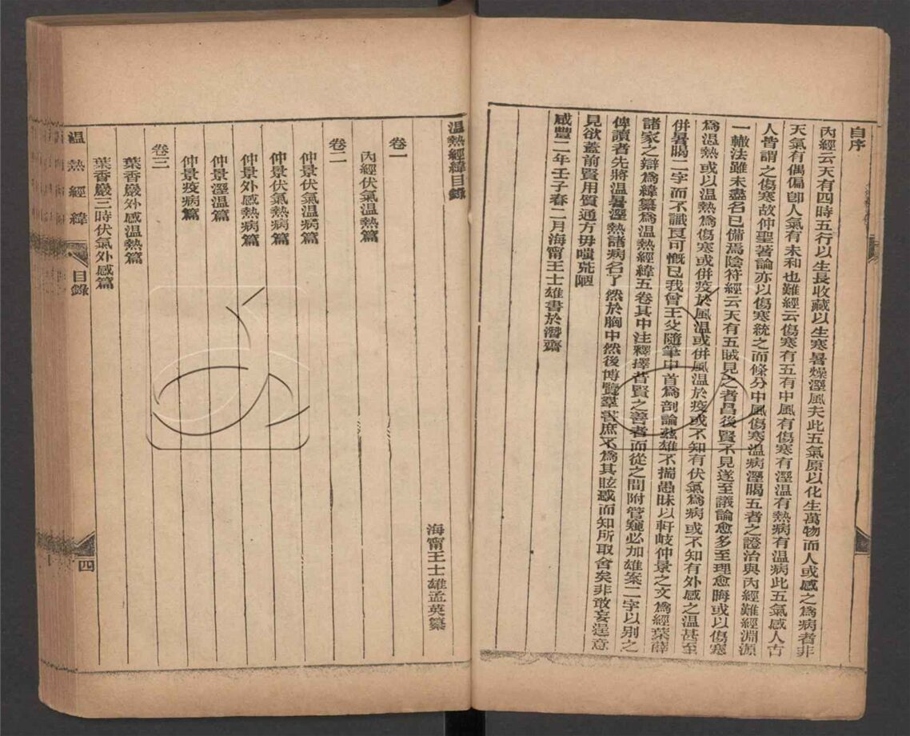 自序
內經云天有四時五行以生長收藏以生寒暑燥溼風夫此五氣原以化生萬物而人或感之爲病者非
天氣有偶偏卽人氣有未和也難經云傷寒有五有中風有傷寒有溼溫有熱病有温病此五氣感人古
人皆謂之傷寒故仲聖著論亦以傷寒統之而條分中風傷寒温病溼暍五者之證治與內經難經淵源
一轍法雖未盡名已備焉陰符經云天有五賊見之者昌後賢不見遂至議論愈多至理愈晦或以傷寒
爲温熱或以温熱爲傷寒或併疫於風温或併風温於疫或不知有伏氣爲病或不知有外感之温甚至
併暑暍二字而不識良可慨已我曾王父隨筆中首爲剖論茲雄不揣愚昧以軒岐仲景之文爲經葉薛
諸家之辯爲緯纂爲温熱經緯五卷其中注釋擇昔賢之善者而從之間附管窺必加雄案二字以別之
俾讀者先將温暑溼熱諸病名了然於胸中然後博覽羣書庶不爲其眩惑而知所取舍矣非敢妄逞意
見欲蓋前賢用質通方毋嗤荒陋
咸豐二年壬子春二月海甯王士雄書於潛齋
温熱經緯目錄
海甯王士雄孟英纂
卷一
內經伏氣温熱篇
卷二
仲景伏氣温病篇
仲景伏氣熱病篇
仲景外感熱病篇
仲景溼温篇
仲景疫病篇
卷三
葉香巖外感温熱篇
葉香巖三時伏氣外感篇
温熱經緯
目錄
四